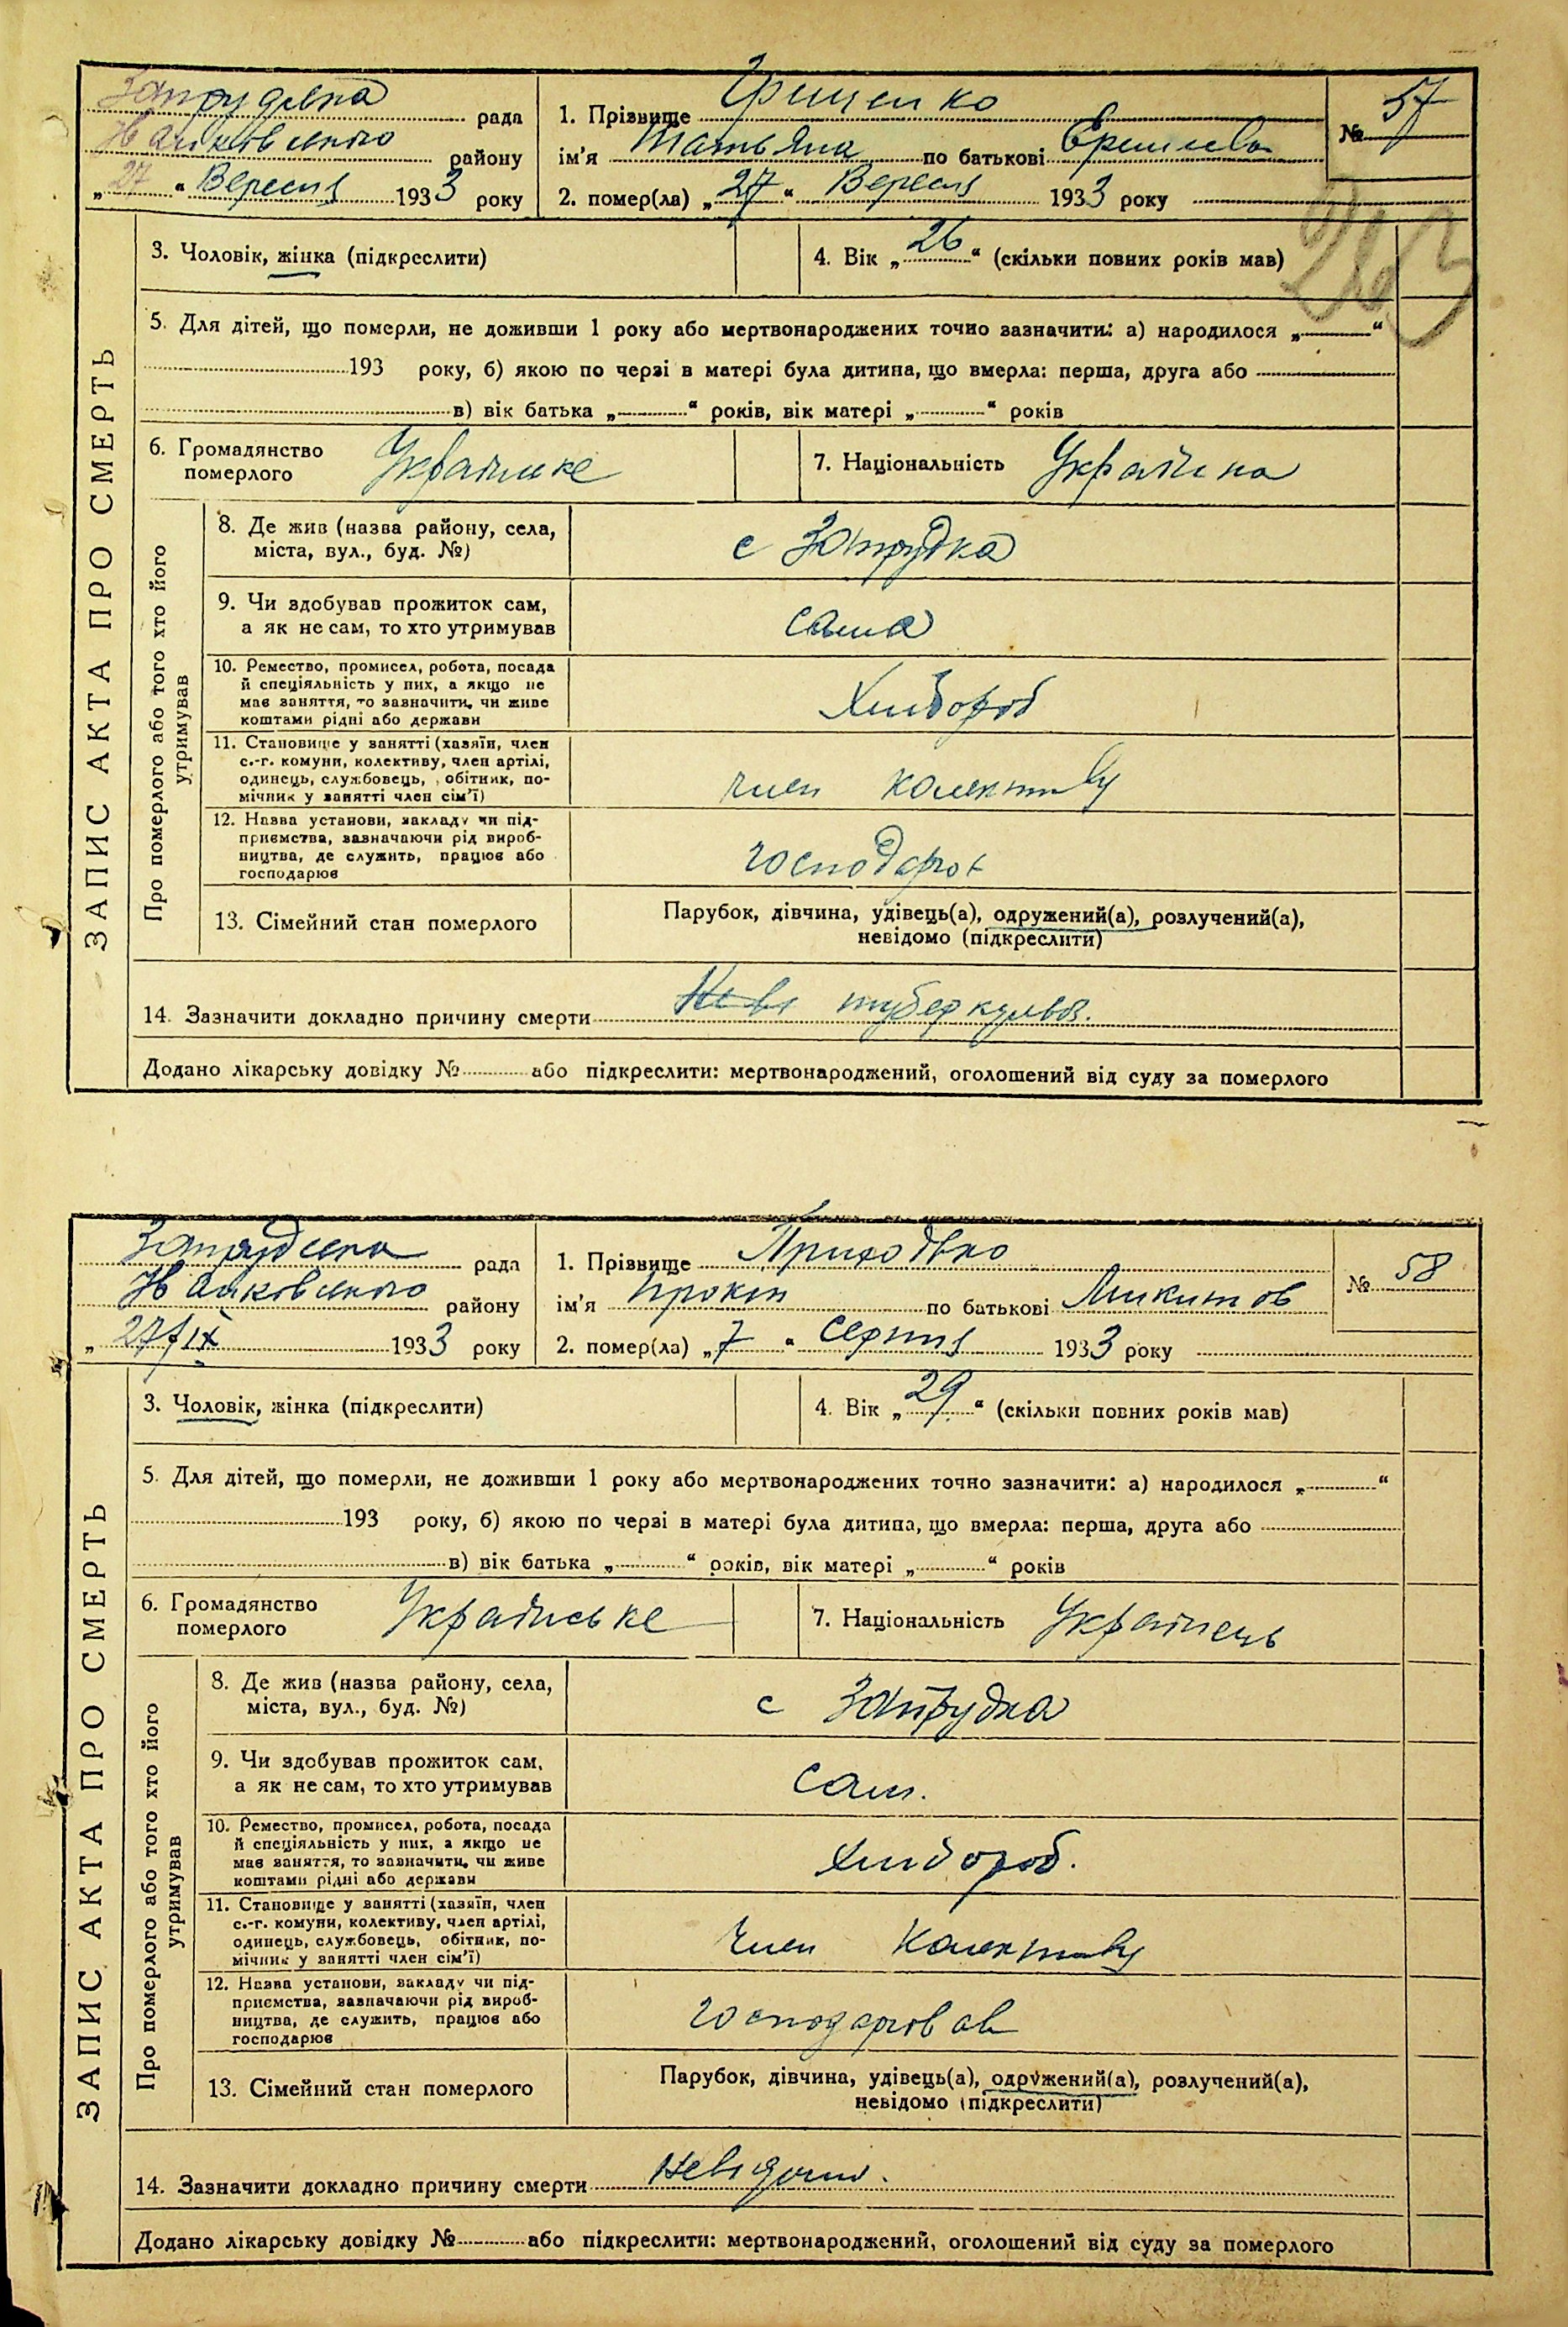 ЗАПИС АКТА ПРО СМЕРТЬ
рада
району
„27“ Вересня 1933 року
1. Прізвище Грищенко
ім'я Татьяна по батькові
2. помер(ла) „27“ Вересня 1933 року
№ 57
263
3. Чоловік, жінка (підкреслити)
4. Вік „26“ (скільки повних років мав)
5. Для дітей, що померли, не доживши 1 року або мертвонароджених точно зазначити: а) народилося „ “
193 року, б) якою по черзі в матері була дитина, що вмерла: перша, друга або
в) вік батька „ “ років, вік матері „ “ років
6. Громадянство
померлого Українське
7. Національність Українка
Про померлого або того хто його
утримував
8. Де жив (назва району, села,
міста, вул., буд. №)
с Запрудка
9. Чи здобував прожиток сам,
а як не сам, то хто утримував
сама
10. Ремество, промисел, робота, посада
й спеціяльність у них, а якщо не
має заняття, то зазначити, чи живе
коштами рідні або держави
Хлибороб
11. Становище у занятті (хазяїн, член
с.-г. комуни, колективу, член артілі,
одинець, службовець, обітник, по-
мічник у занятті член сім'ї)
член колективу
12. Назва установи, закладу чи під-
приємства, зазначаючи рід вироб-
ництва, де служить, працює або
господарює
господарює
13. Сімейний стан померлого
Парубок, дівчина, удівець(а), одружений(а), розлучений(а),
невідомо (підкреслити)
14. Зазначити докладно причину смерти туберкульоз.
Додано лікарську довідку № або підкреслити: мертвонароджений, оголошений від суду за померлого
ЗАПИС АКТА ПРО СМЕРТЬ
рада
району
„27/IX 1933 року
1. Прізвище Приходько
ім'я Прокоп по батькові Микитов
2. помер(ла) „7“ серпня 1933 року
№ 58
3. Чоловік, жінка (підкреслити)
4. Вік „29“ (скільки повних років мав)
5. Для дітей, що померли, не доживши 1 року або мертвонароджених точно зазначити: а) народилося „ “
193 року, б) якою по черзі в матері була дитина, що вмерла: перша, друга або
в) вік батька „ “ років, вік матері „ “ років
6. Громадянство
померлого Українське
7. Національність Українець
Про померлого або того хто його
утримував
8. Де жив (назва району, села,
міста, вул., буд. №)
с Запрудка
9. Чи здобував прожиток сам,
а як не сам, то хто утримував
сам.
10. Ремество, промисел, робота, посада
й спеціяльність у них, а якщо не
має заняття, то зазначити, чи живе
коштами рідні або держави
хлибороб.
11. Становище у занятті (хазяїн, член
с.-г. комуни, колективу, член артілі,
одинець, службовець, обітник, по-
мічник у занятті член сім'ї)
член колективу
12. Назва установи, закладу чи під-
приємства, зазначаючи рід вироб-
ництва, де служить, працює або
господарює
господарював
13. Сімейний стан померлого
Парубок, дівчина, удівець(а), одружений(а), розлучений(а),
невідомо (підкреслити)
14. Зазначити докладно причину смерти невідомо.
Додано лікарську довідку № або підкреслити: мертвонароджений, оголошений від суду за померлого